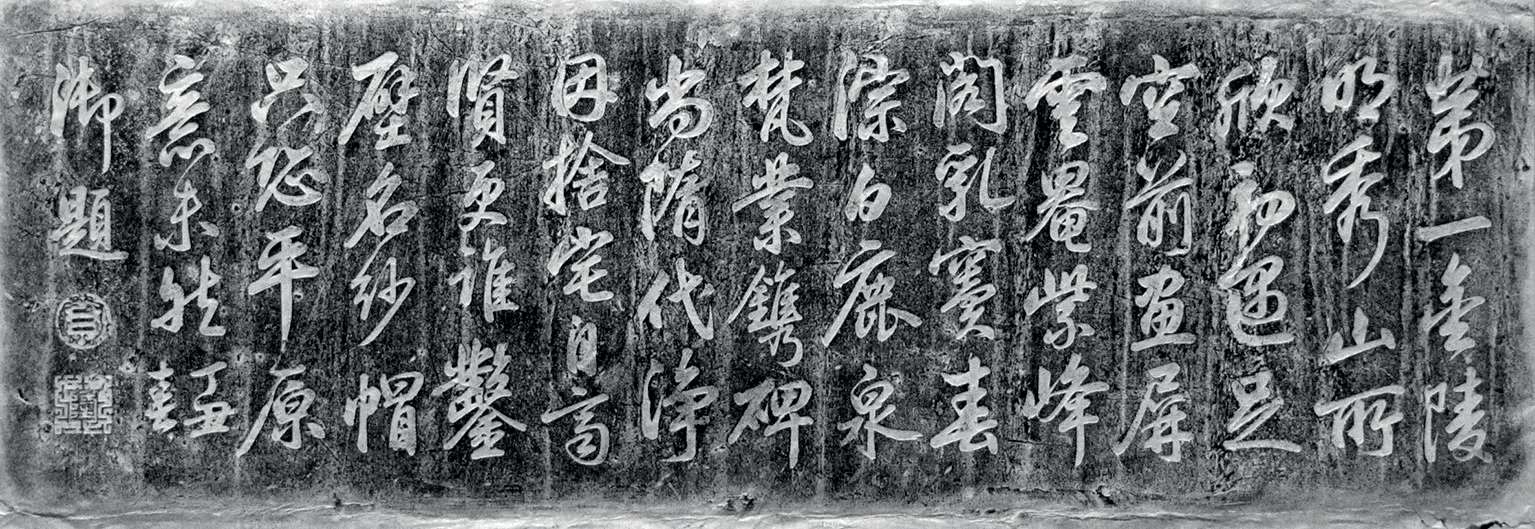 第一金陵
明秀山所
欣初遇足
空前畫屏
雲罨紫峰
閣乳竇春
淙白鹿泉
梵業鐫碑
尚隋代淨
因捨宅自高
賢更誰鑿
壁名紗帽
只恐平原
意未然丁丑
春
御題